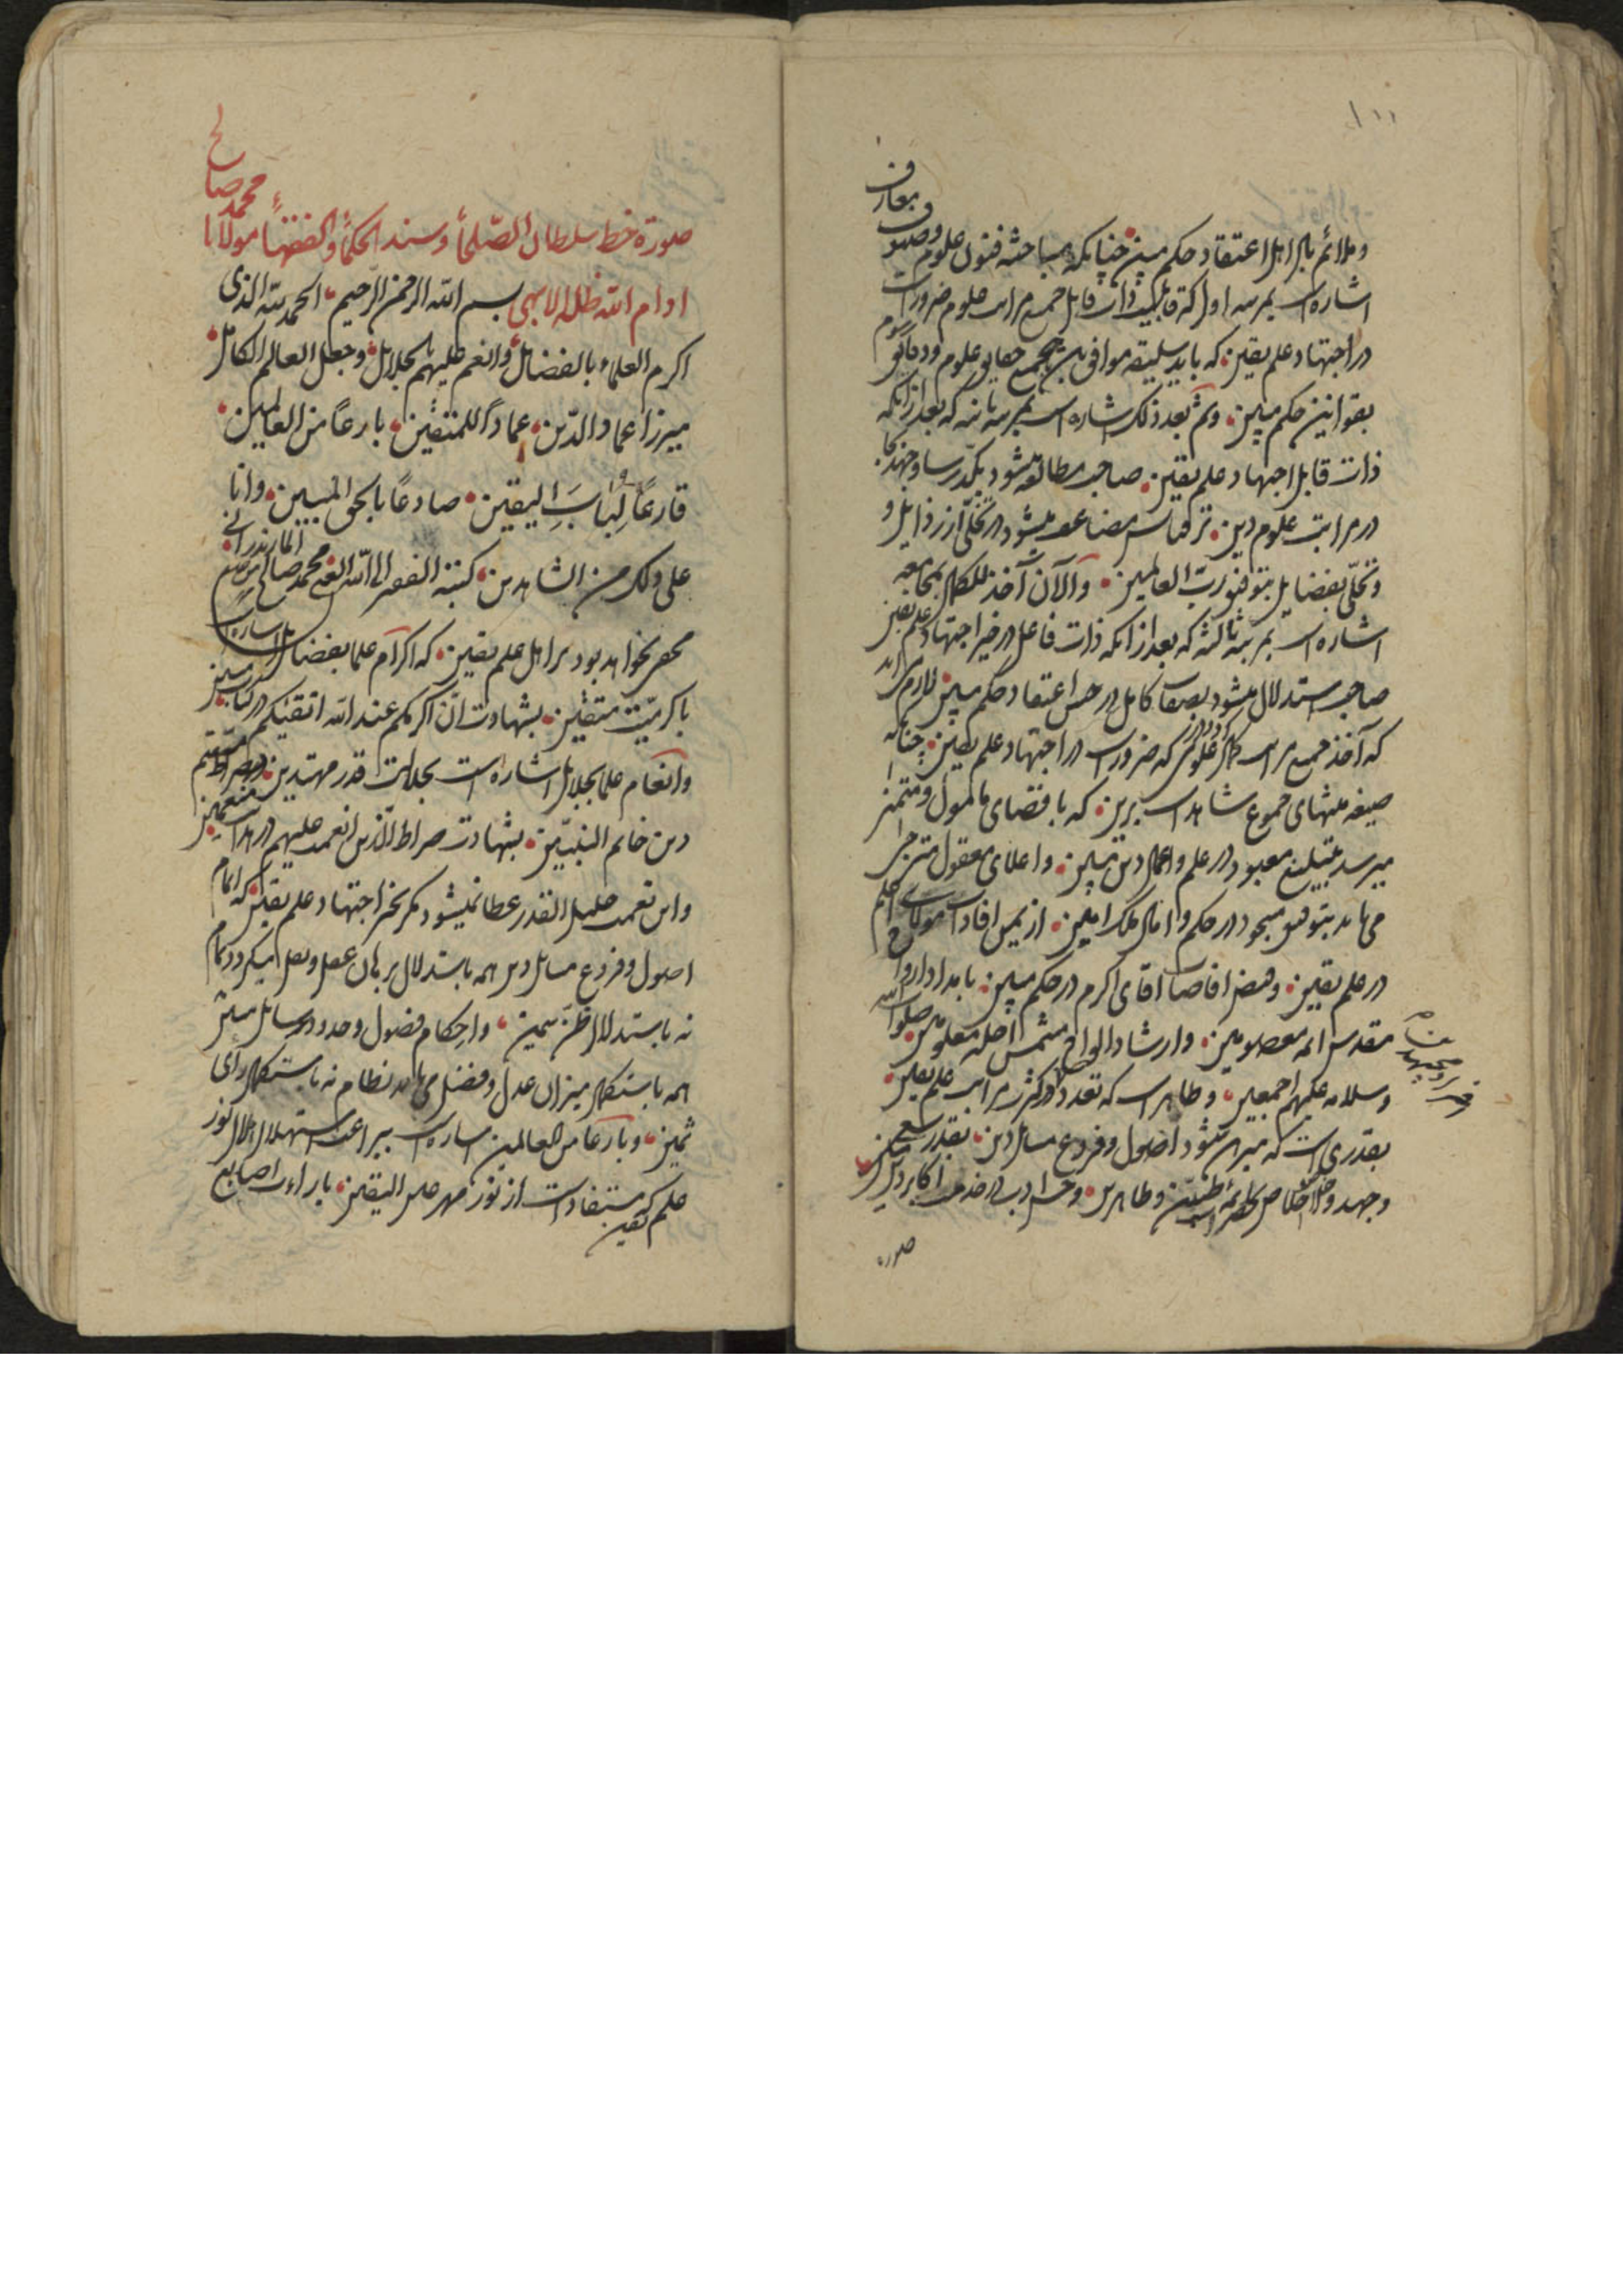 ۱۰۰
و ملائم براهل اعتقاد حکم مبین چنانکه مباحثه فنون علوم و صنوف معارف
اشاره است بمرتبه اول که قابلیت ذات قابل جمیع مراتب علوم ضرور است
در اجتهاد علم یقین که باید سلیقه موافق بجمیع حقایق علوم و دقایق رسوم
بقوانین حکم مبین و ثم بعد ذلک اشاره است بمرتبه ثانیه که بعد از آنکه
ذات قابل اجتهاد علم یقین صاحب مطالعه میشود
در مراتب علوم دین ترقیاتش مضاعف میشود در تخلی از رذایل و
و تحلی بفضایل بتوفیق رب العالمین و الآن آخذ للکمال بمجامعه
اشاره است بمرتبه ثالثه که بعد از آنکه ذات فاعل در خیر اجتهاد علم یقین
صاحب استدلال میشود بصفات کامل در حسن اعتقاد حکم مبین لازم می آید
که آخذ جمیع مراتب کمال علومی که ضرور است در اجتهاد علم یقین چنانکه
صیغه منتهای جموع شاهد است برین که باقتضای مامول و متمنی
میرسد بتبلیغ معبود در علم و اعمال دین مبین و اعلای معقول
می یابد بتوفیق مسجود در حکم و امثال ملک امین از یمن افادات مولای اعلم
در علم یقین و فیض افاضات اقای اکرم در حکم مبین بامداد ارواح
مقدس ائمه معصومین و ارشاد الواح شمس اجله معلومین صلوات الله
و سلامه علیهم اجمعین و ظاهر است که تعدد و تکثر مراتب علم یقین
بقدری است که مبرهن میشود اصول و فروع مسائل دین بقدر سعی
و جهد و اخلاص بحضرات ائمه طیبین و طاهرین و حسن ادب در خدمت اکابر دین
صورة
صورة خط سلطان الصلحاء و سند الحکماء و الفقهاء مولانا محمد صالح
ادام الله ظله الابهی بسم الله الرحمن الرحیم الحمد لله الذی
اکرم العلماء بالفضائل و انعم علیهم بالجلائل و جعل العالم الکامل
میرزا عماد الدین عماداً للمتقین بارعاً من العالمین
قارعاً لباب الیقین صادعاً بالحق المبین و انا
علی ذلک من الشاهدین کتبه الفقیر الی الله الغنی محمد صالح المازندرانی
مخفی نخواهد بود بر اهل علم یقین که اکرام علما بفضائل اشاره است
باکرمیت متقین بشهادت ان اکرمکم عند الله اتقیکم در کتاب مبین
و انعام علما بجلائل اشاره است بجلالت قدر مهتدین بصراط مستقیم
دین خاتم النبیین بشهادت صراط الذین انعمت علیهم در هدایت منعمین
و این نعمت جلیل القدر عطا نمیشود مگر بخیر اجتهاد علم یقین که اتمام
اصول و فروع مسائل دین همه باستدلال برهان عقل و نقل میکردد تمام
نه باستدلال ظن سمین و احکام فصول و حدود رسائل مبین
همه باستکمال میزان عدل و فضل می یابد نظام نه باستکمال رای
ثمین و بارعاً من العالمین اشاره است ببراعت استهلال هلال نور
علم یقین که مستفاد است از نور مهر عین الیقین باراءت اصابع